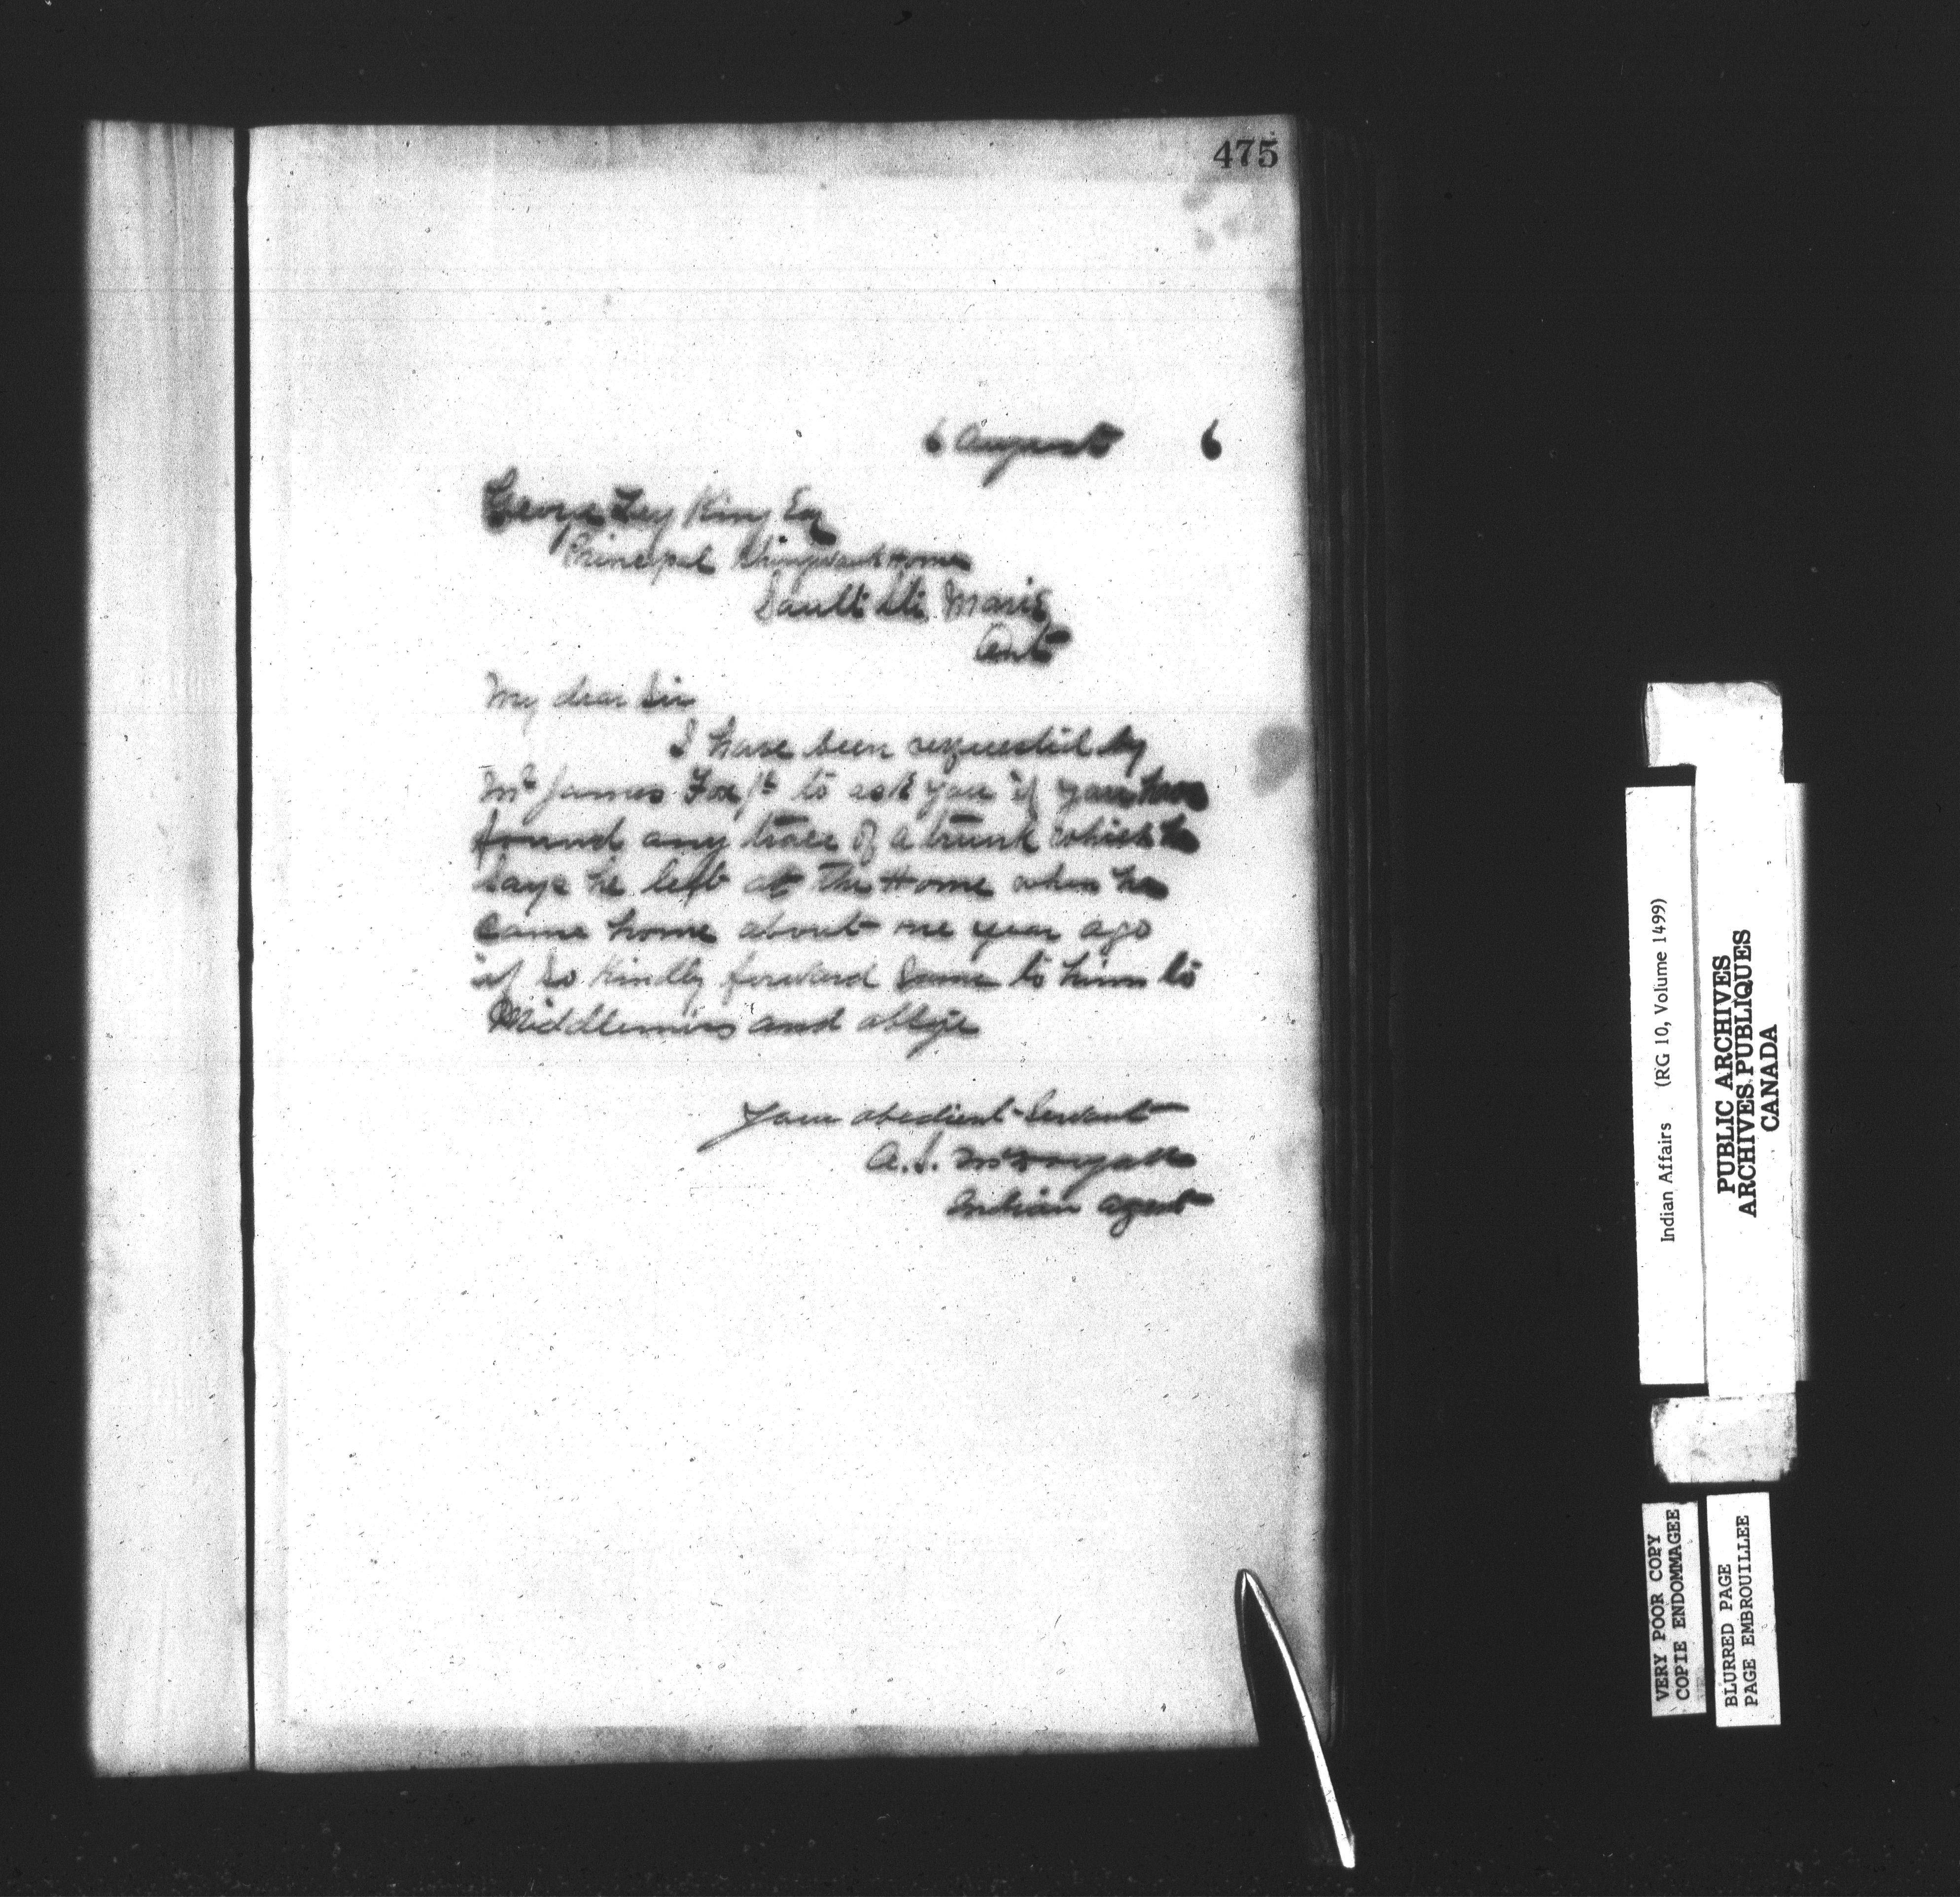 475
6 August 6
George Ley King Esq
Principal Shingwauk Home
Sault Ste Marie
Ont
My dear Sir
I have been requested by
Mr James Fox Jr to ask you if you have
found any trace of a trunk which he
says he left at the Home when he
came home about one year ago
if so kindly forward same to him to
Middlemiss and oblige
Your obedient Servant
A. S. McDougall
Indian Agent
Indian Affairs (RG 10, Volume 1499)
PUBLIC ARCHIVES
ARCHIVES PUBLIQUES
CANADA
VERY POOR COPY
COPIE ENDOMMAGEE
BLURRED PAGE
PAGE EMBROUILLEE